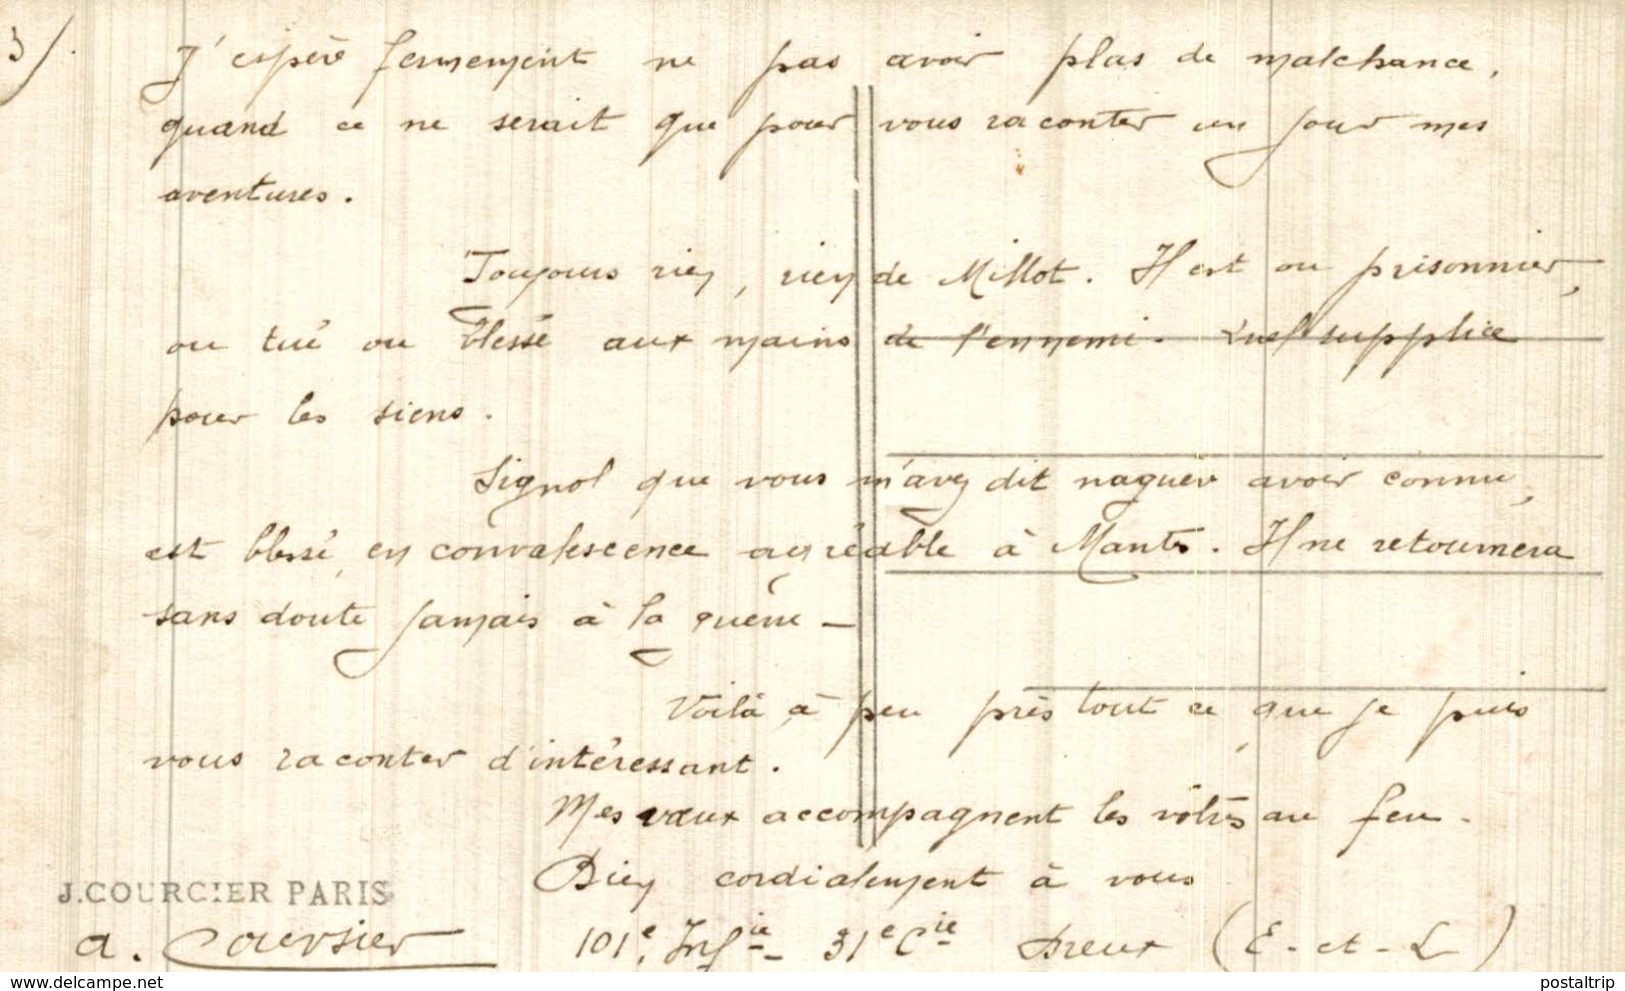 3/.
J'espère fermement ne pas avoir plus de malchance,
quand ce ne serait que pour vous raconter un jour mes
aventures.
Toujours rien, rien de Millot. Il est ou prisonnier,
ou tué ou blessé aux mains de l'ennemi. Quel supplice
pour les siens.
Signol que vous m'avez dit naguère avoir connu,
est blessé, en convalescence agréable à Mantes. Il ne retournera
sans doute jamais à la guerre —
Voilà à peu près tout ce que je puis
vous raconter d'intéressant.
Mes vœux accompagnent les vôtres au feu.
Bien cordialement à vous
J. COURCIER PARIS
a. Coursier 101e Infie - 31e Cie Dreux (E-et-L)
delcampe.net
postaltrip